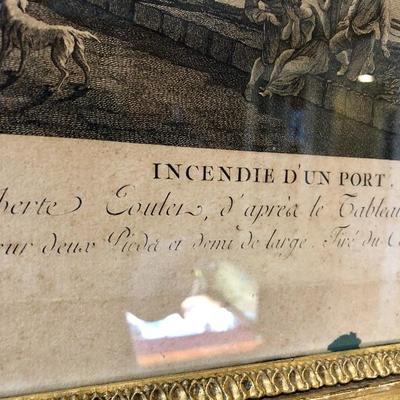 INCENDIE D'UN PORT.
berte Coulet, d'après le Tableau
eur deux Pieds et demi de large. Tiré du C